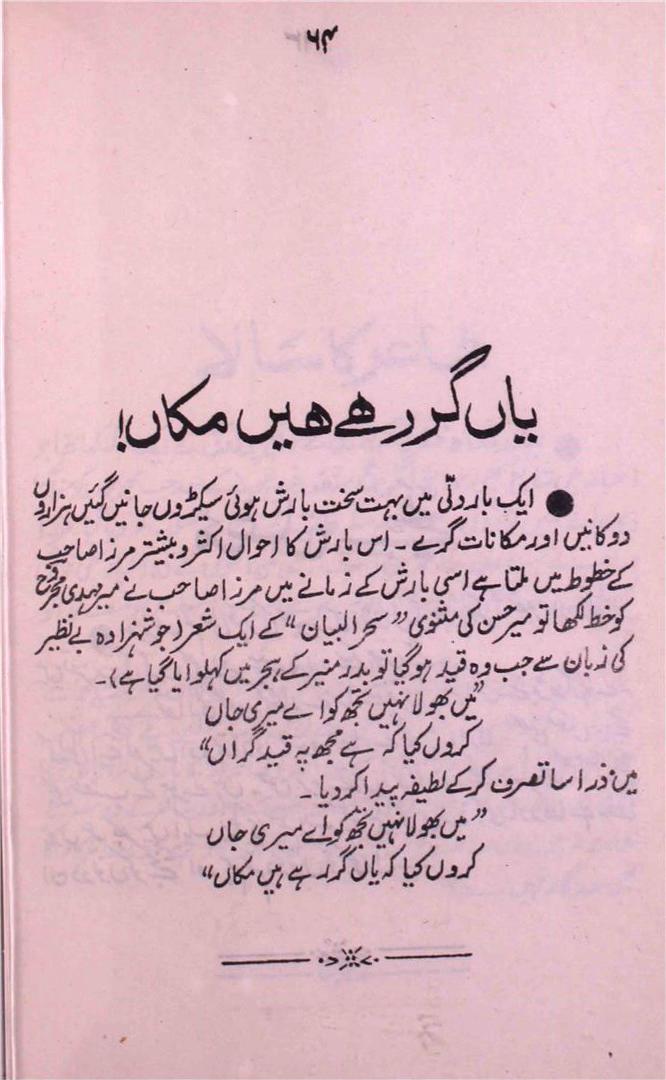 ۶۴
یاں گر رھے ھیں مکاں!
● ایک بار دلّی میں بہت سخت بارش ہوئی سیکڑوں جانیں گئیں ہزاروں
دوکانیں اور مکانات گرے ۔ اس بارش کا احوال اکثر و بیشتر مرزا صاحب
کے خطوط میں ملتا ہے اسی بارش کے زمانے میں مرزا صاحب نے میر مہدی مجروح
کو خط لکھا تو میر حسن کی مثنوی ”سحر البیان“ کے ایک شعر (جو شہزادہ بے نظیر
کی زبان سے جب وہ قید ہو گیا تو بدر منیر کے ہجر میں کہلوایا گیا ہے)۔
”میں بھولا نہیں تجھ کو اے میری جاں
کروں کیا کہ ہے مجھ پہ قید گراں“
میں ذرا سا تصرف کر کے لطیفہ پیدا کر دیا ۔
”میں بھولا نہیں تجھ کو اے میری جاں
کروں کیا کہ یاں گر رہے ہیں مکاں“